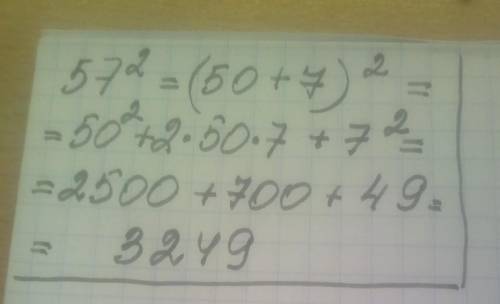 57² = (50 + 7)² =
= 50² + 2·50·7 + 7² =
= 2500 + 700 + 49 =
= 3249